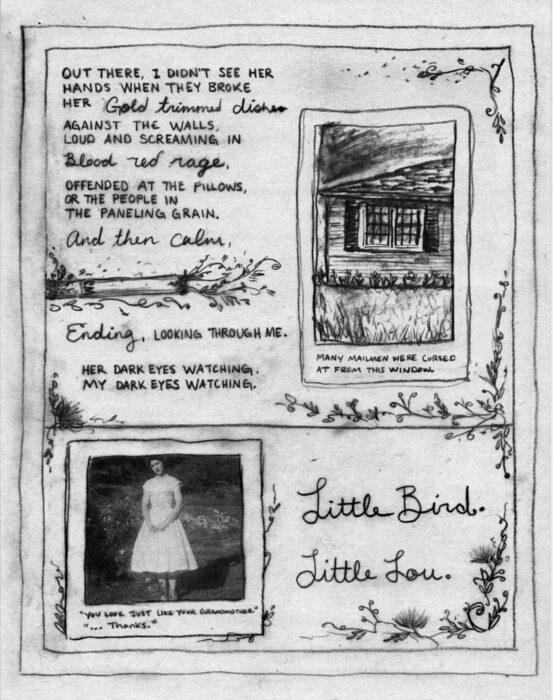 OUT THERE, I DIDN'T SEE HER
HANDS WHEN THEY BROKE
HER Gold trimmed dishes
AGAINST THE WALLS,
LOUD AND SCREAMING IN
Blood red rage,
OFFENDED AT THE PILLOWS,
OR THE PEOPLE IN
THE PANELING GRAIN.
And then calm,
Ending, LOOKING THROUGH ME.
HER DARK EYES WATCHING.
MY DARK EYES WATCHING.
MANY MAILMEN WERE CURSED
AT FROM THIS WINDOW.
"YOU LOOK JUST LIKE YOUR GRANDMOTHER."
"... Thanks."
Little Bird.
Little Lou.